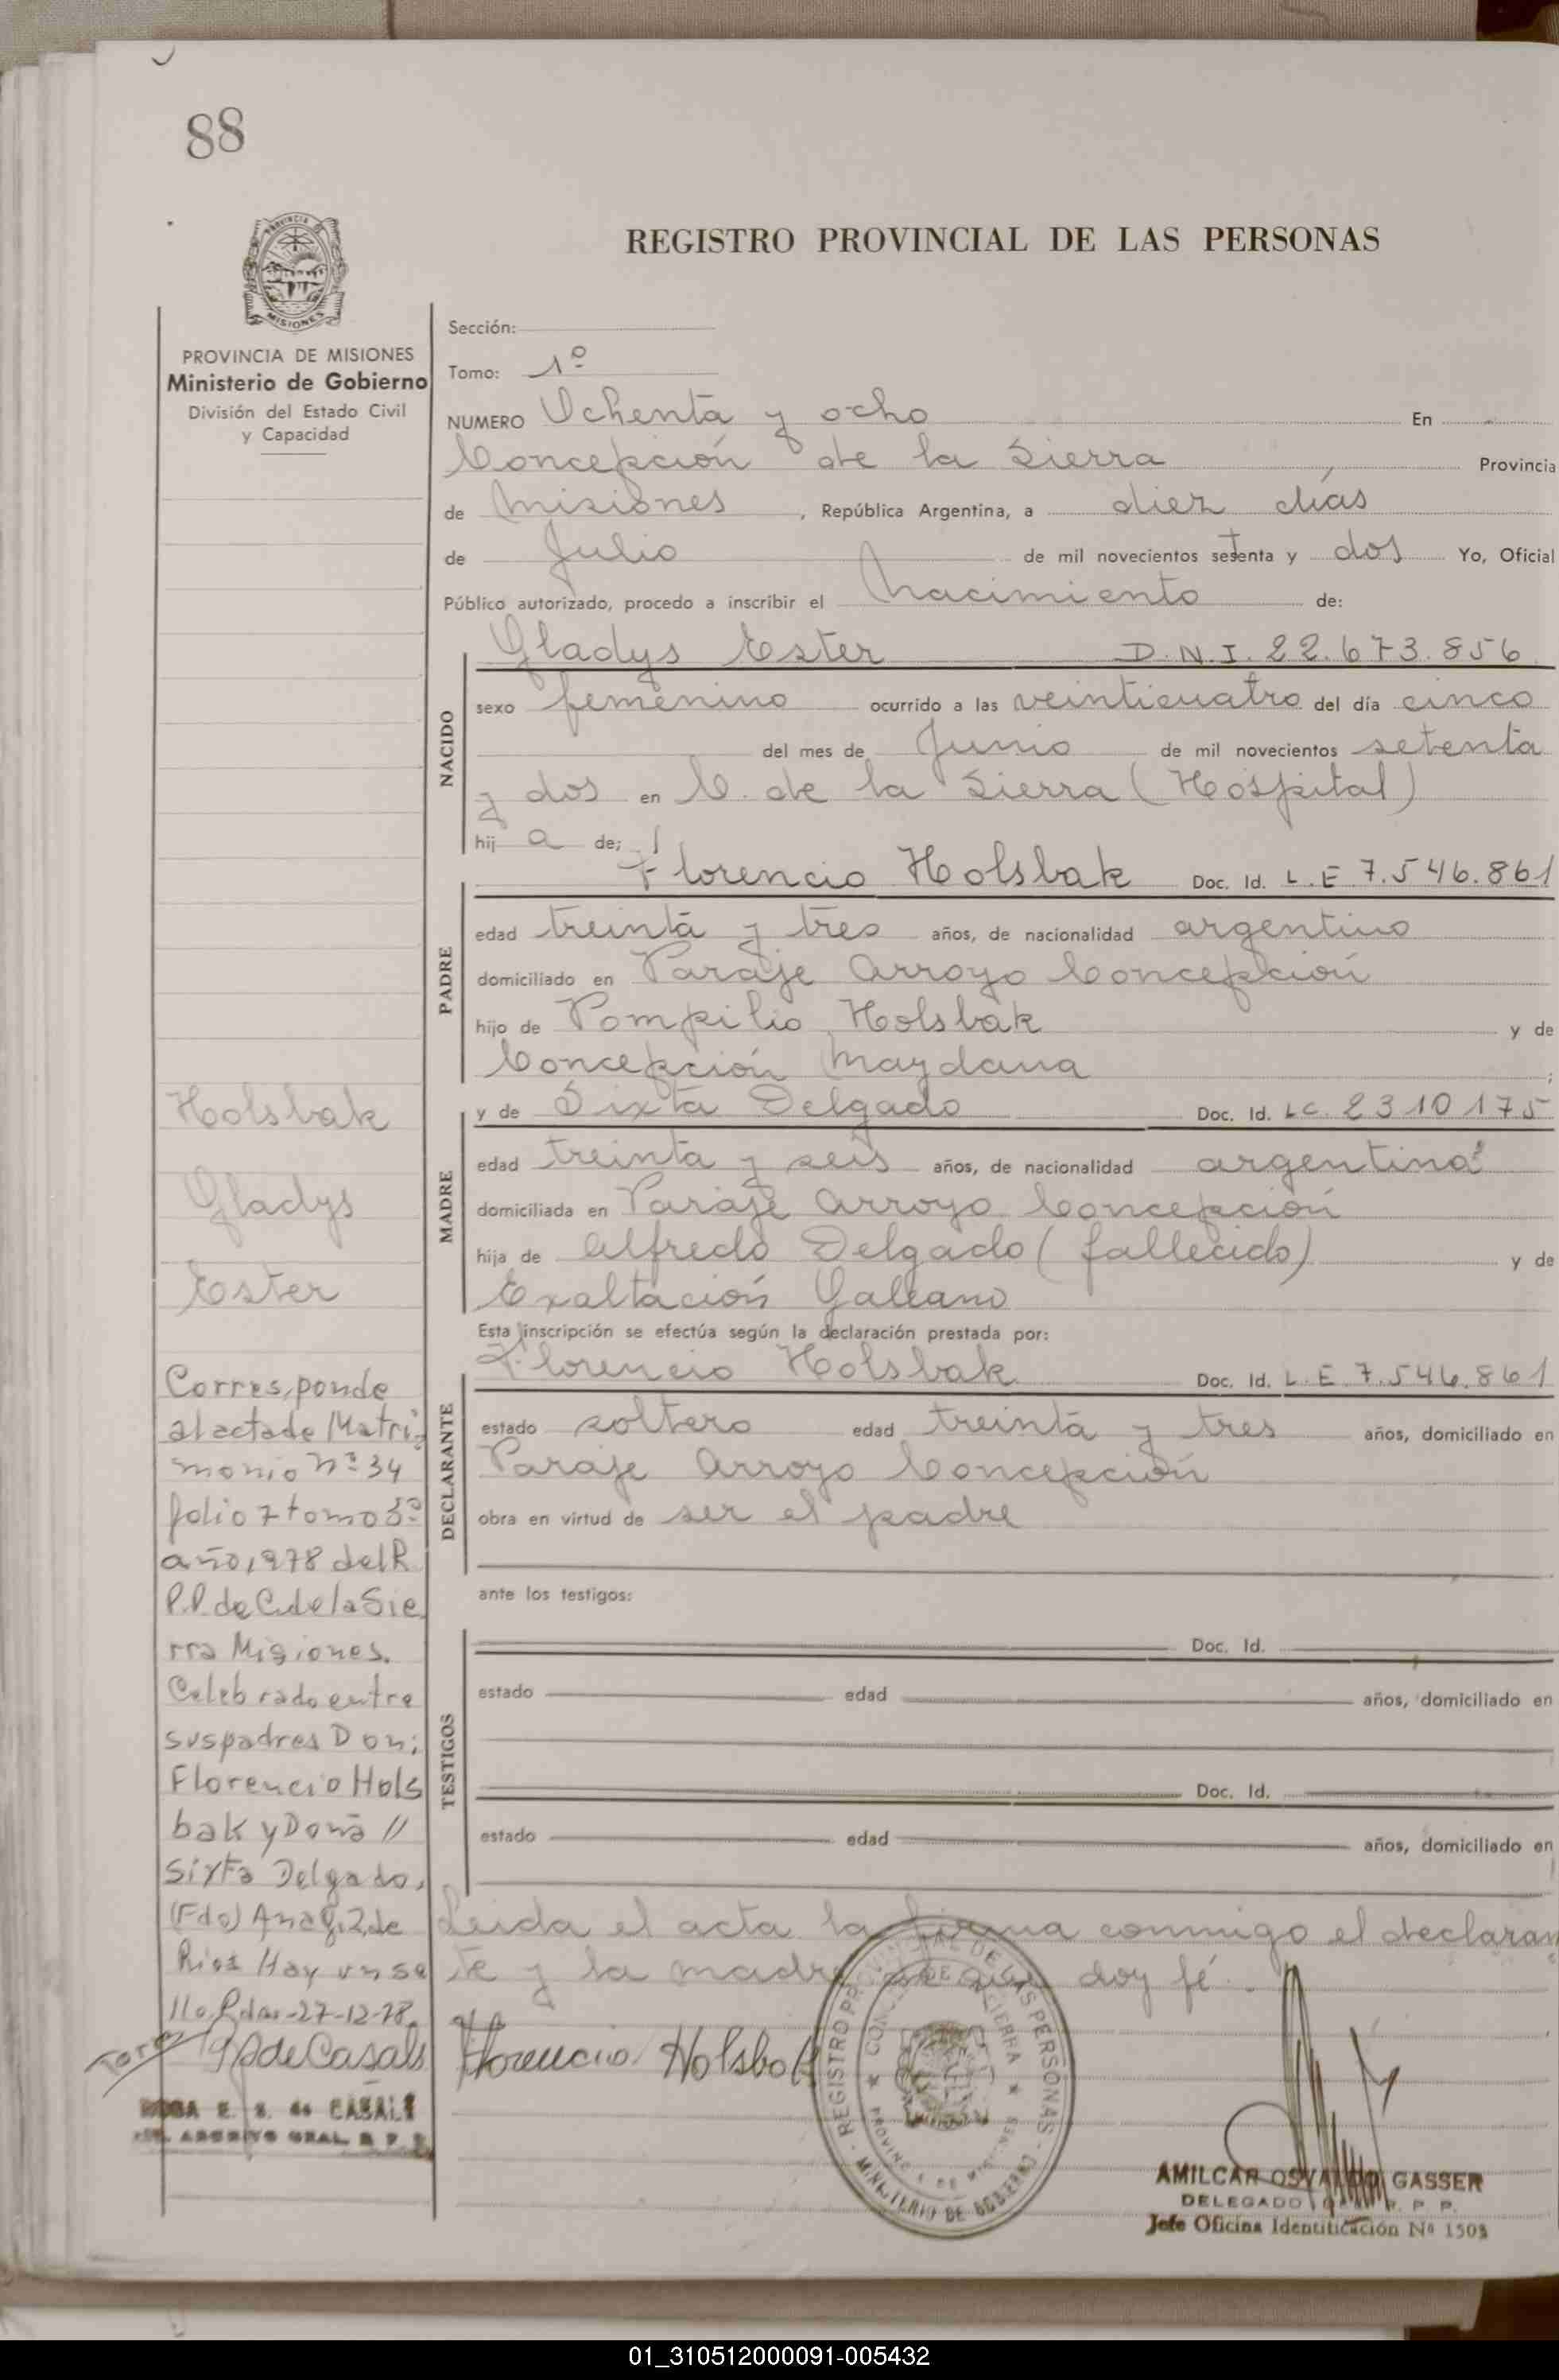 88
PROVINCIA DE MISIONES
Ministerio de Gobierno
División del Estado Civil
y Capacidad
REGISTRO PROVINCIAL DE LAS PERSONAS
Sección:
Tomo: 1º
NUMERO Ochenta y ocho En
Concepción de la Sierra, Provincia
de Misiones, República Argentina, a diez días
de Julio de mil novecientos setenta y dos Yo, Oficial
Público autorizado, procedo a inscribir el Nacimiento de:
Gladys Ester D.N.I. 22.673.856
NACIDO
sexo femenino ocurrido a las veinticuatro del día cinco
del mes de Junio de mil novecientos setenta
y dos en C. de la Sierra (Hospital)
hij a de;
Florencio Holsbak Doc. Id. L.E 7.546.861
PADRE
edad treinta y tres años, de nacionalidad argentino
domiciliado en Paraje Arroyo Concepción
hijo de Pompilio Holsbak y de
Concepción Maydana ;
y de Sixta Delgado Doc. Id. LC. 2310175
MADRE
edad treinta y seis años, de nacionalidad argentina
domiciliada en Paraje Arroyo Concepción
hija de Alfredo Delgado (fallecido) y de
Exaltación Galeano
Esta inscripción se efectúa según la declaración prestada por:
Florencio Holsbak Doc. Id. L.E. 7.546.861
DECLARANTE
estado soltero edad treinta y tres años, domiciliado en
Paraje Arroyo Concepción
obra en virtud de ser el padre
ante los testigos:
TESTIGOS
Doc. Id.
estado edad años, domiciliado en
Doc. Id.
estado edad años, domiciliado en
Leida el acta la firma conmigo el declaran
te y la madre de que doy fé.
Florencio Holsbak
Holsbak
Gladys
Ester
Corresponde
al acta de Matri
monio nº 34
folio 7 tomo 3º
año 1978 del R
P.P. de C. de la Sie
rra Misiones.
Celebrado entre
sus padres Don;
Florencio Hols
bak y Doña //
Sixta Delgado,
(Fdo) Ana G. de
Rios Hay un se
llo. Pdas-27-12-78.
de Casals
ROSA E. S. de CASALS
ARCHIVO GRAL. R. P. P.
REGISTRO PROVINCIAL DE LAS PERSONAS
MINISTERIO DE GOBIERNO
CONCEPCION DE LA SIERRA
PROVINCIA DE MISIONES
AMILCAR OSVALDO GASSER
DELEGADO R. P. P.
Jefe Oficina Identificación Nº 1503
01_310512000091-005432